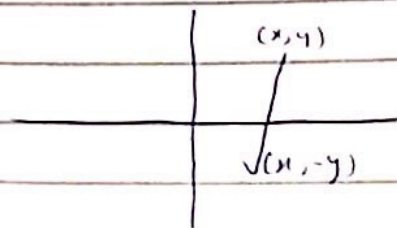 (x,y)
(x,-y)